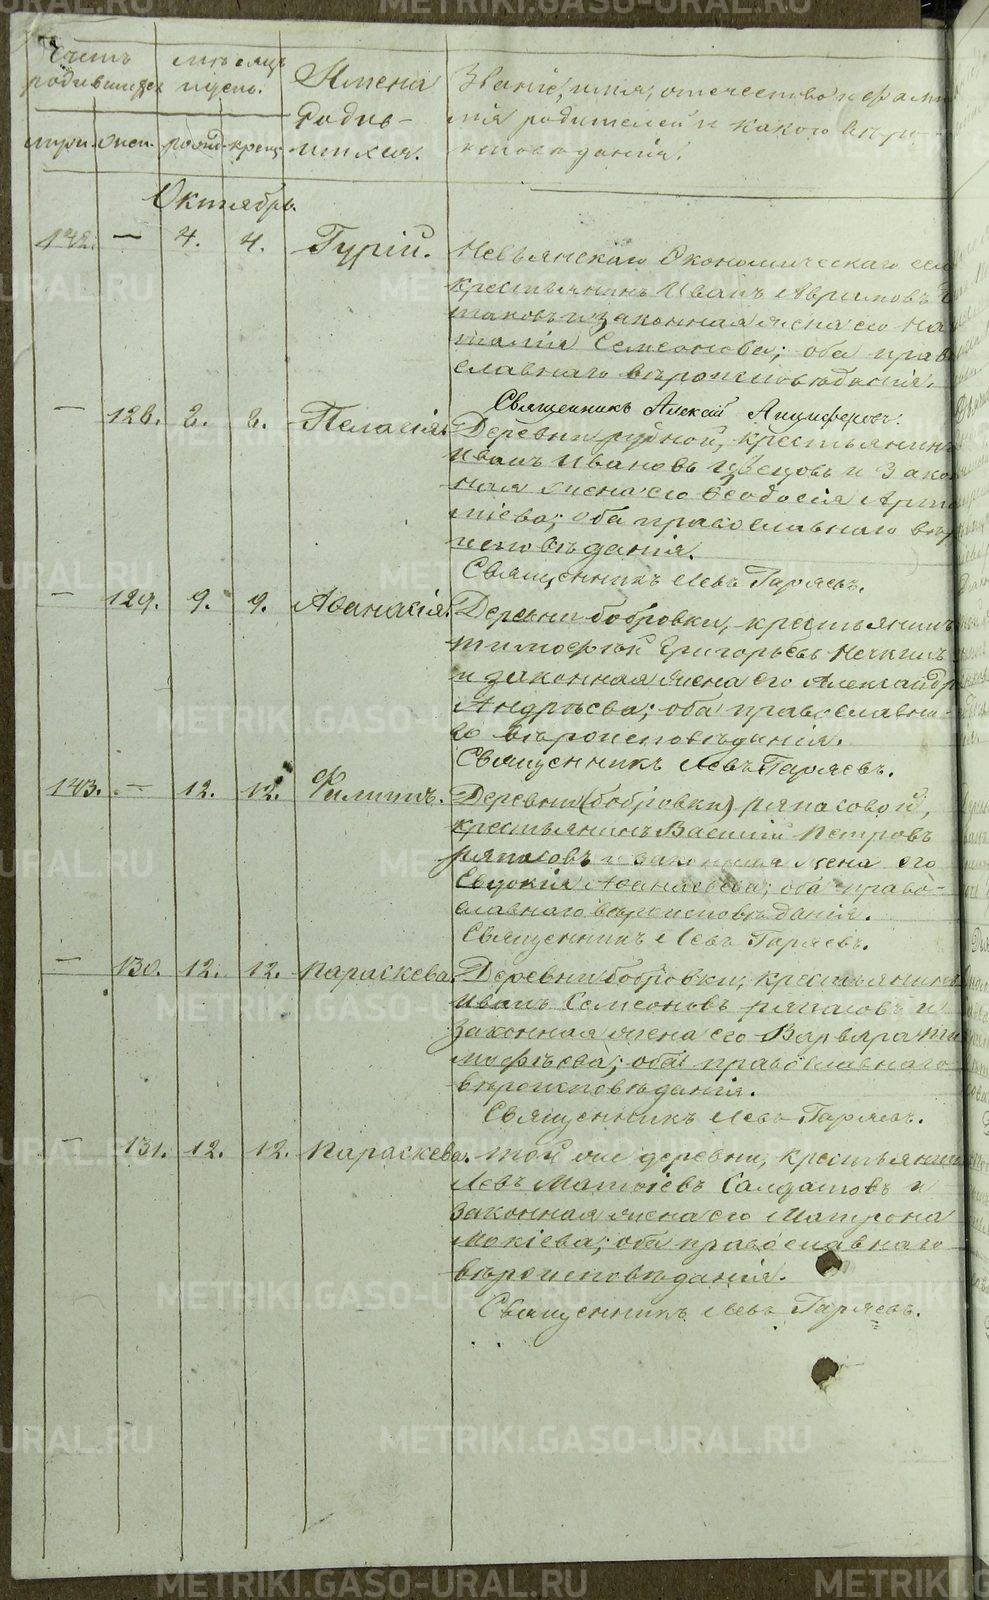 Счетъ родившихся
мѣсяцъ и день.
Имена родив-
шихся.
Званіе, имя, отечество и фами-
лія родителей и какого вѣро-
исповѣданія.
муж. жен. рожд. крещ.
Октябрь
142. — 4. 4. Гурій. Невьянскаго Экономическаго се
крестьянинъ Иванъ Аврамовъ
и законная жена его На
талія Семенова; оба прав
славнаго вѣроисповѣданія.
Священникъ Алексѣй Анциферовъ.
— 128. 8. 8. Пелагія. Деревни рудной, крестьянинъ
Иванъ Ивановъ и зако
ная жена его Ѳеодосія Арте
міева; оба православнаго вѣр
исповѣданія.
Священникъ Левъ Гаряевъ.
— 129. 9. 9. Аѳанасія. Деревни бобровки, крестьянинъ
Тимофѣй Григорьевъ Нечкинъ
и законная жена его Александр
Андрѣева; оба православна-
го вѣроисповѣданія.
Священникъ Левъ Гаряевъ.
143. — 12. 12. Филиппъ. Деревни (бобровки) ряпасовой,
крестьянинъ Василій Петровъ
ряпасовъ и законная жена его
Евдокія Аѳанасьева; оба право-
славнаго вѣроисповѣданія.
Священникъ Левъ Гаряевъ.
— 130. 12. 12. Параскева. Деревни бобровки, крестьянинъ
Иванъ Семеоновъ ряпасовъ и
законная жена его Варвара Ти
мофѣева; оба православнаго
вѣроисповѣданія.
Священникъ Левъ Гаряевъ.
— 131. 12. 12. Параскева. той же деревни, крестьянин
Левъ Матѳіевъ Салдатовъ и
законная жена его Матрона
Мокіева; оба православнаго
вѣроисповѣданія.
Священникъ Левъ Гаряевъ.
METRIKI.GASO-URAL.RU